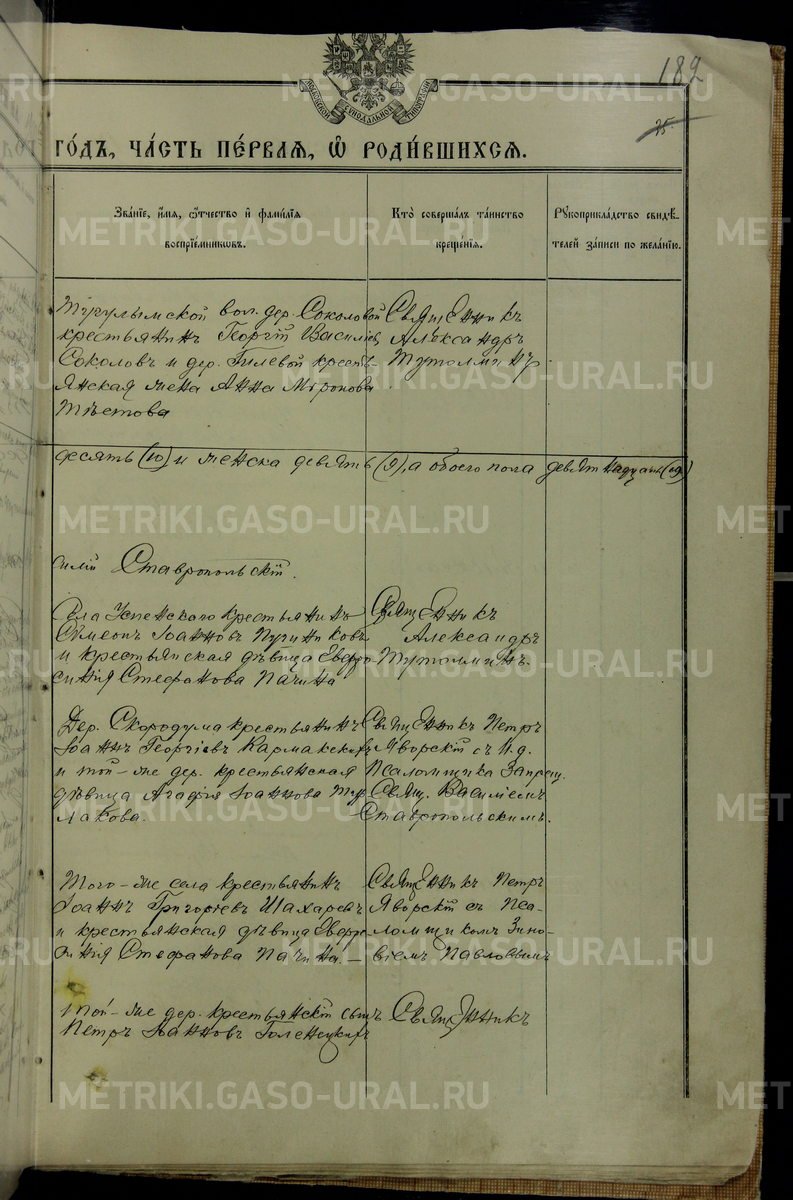 182
25.
ГОДЪ, ЧАСТЬ ПЕРВАЯ, Ѡ РОДИВШИХСЯ.
Званіе, имя, ѻтчество и фамилія воспріемниковъ.
Кто совершалъ таинство крещенія.
Рукоприкладство свидѣтелей записи по желанію.
Тугулымской вол. дер. Соколовой
крестьянинъ Георгій Василіевъ
Соколовъ и дер. Гилевой кресть-
янская жена Анна Миронова
Священникъ
Александръ
Тутолминъ
десять (10) и женска девять (9), а обоего пола девятнадцать (19)
силій Ставропольскій.
Села Успенскаго крестьянинъ
Сѵмеонъ Іоанновъ
и крестьянская дѣвица Евфро-
синія Стефанова Пачина
Священникъ
Александръ
Тутолминъ.
Дер. Скородума крестьянинъ
Іоаннъ Георгіевъ Кармакскихъ
и той-же дер. крестьянская
дѣвица Агафія Іоаннова Тур-
лакова.
Священникъ Петръ
Яворскій съ И.д.
Псаломщика Запрещ.
Свящ. Василіемъ
Ставропольскимъ.
Того-же села крестьянинъ
Іоаннъ Григоріевъ
и крестьянская дѣвица Евфро-
синія Стефанова Пачина.—
Священникъ Петръ
Яворскій съ Пса-
ломщикомъ Зино-
віемъ Павловымъ
Той-же дер. крестьянскій сынъ
Петръ Іоанновъ Голенецкихъ
Священникъ
METRIKI.GASO-URAL.RU